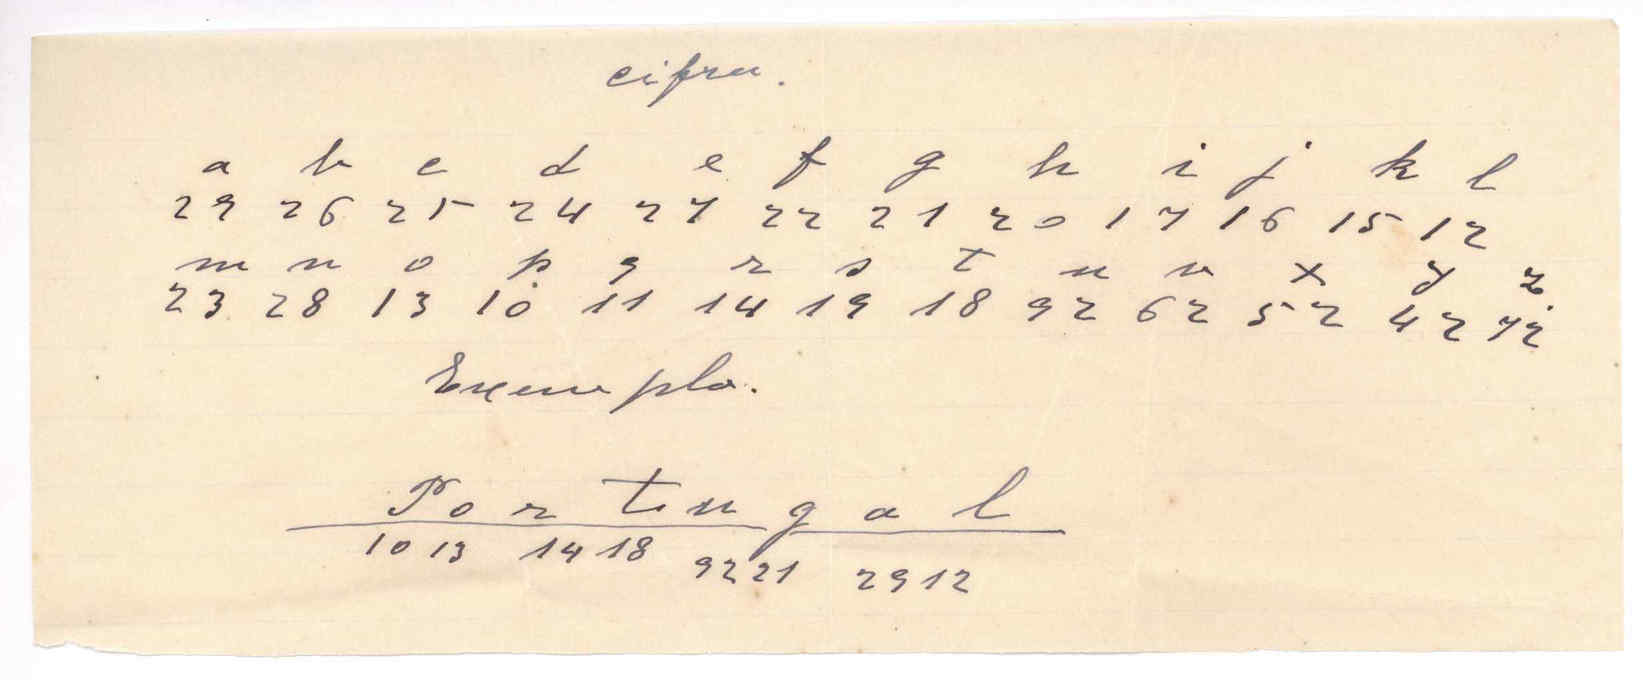 cifra.
a b c d e f g h i j k l
29 26 25 24 27 22 21 20 17 16 15 12
m n o p q r s t u v x y z
23 28 13 10 11 14 19 18 92 62 52 42 72
Exemplo.
Portugal
10 13 14 18 92 21 29 12